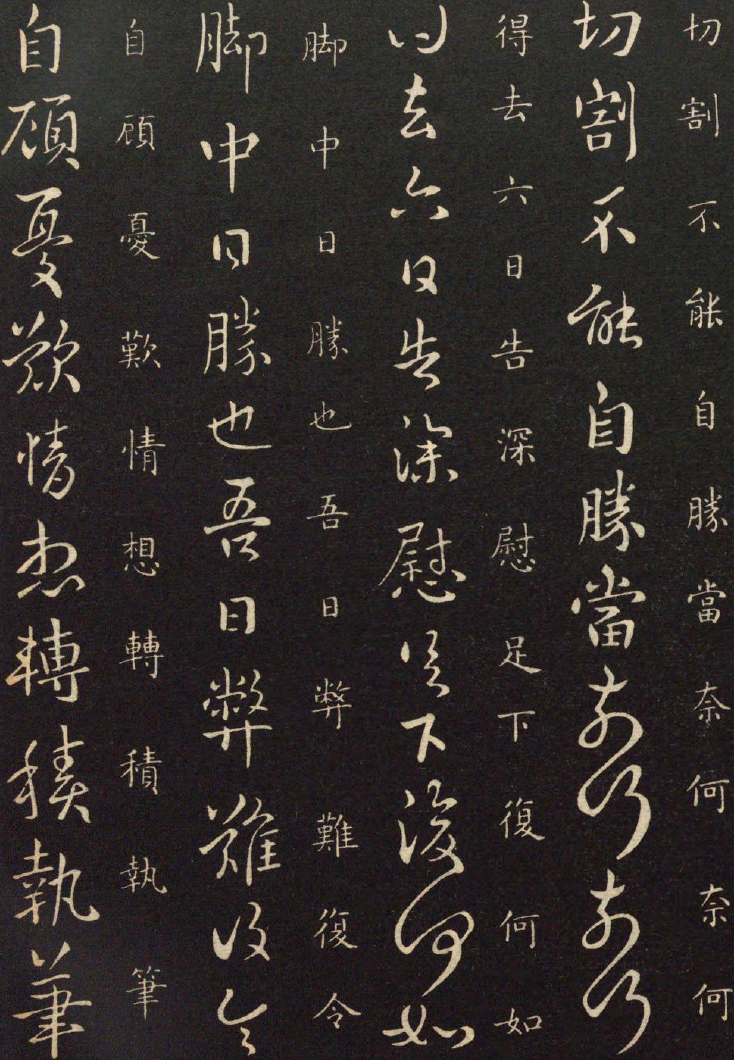 切割不能自勝當奈何奈何
切割不能自勝當奈何奈何
得去六日告深慰足下復何如
得去六日告深慰足下復何如
脚中日勝也吾日弊難復令
脚中日勝也吾日弊難復令
自顧憂歎情想轉積執筆
自顧憂歎情想轉積執筆